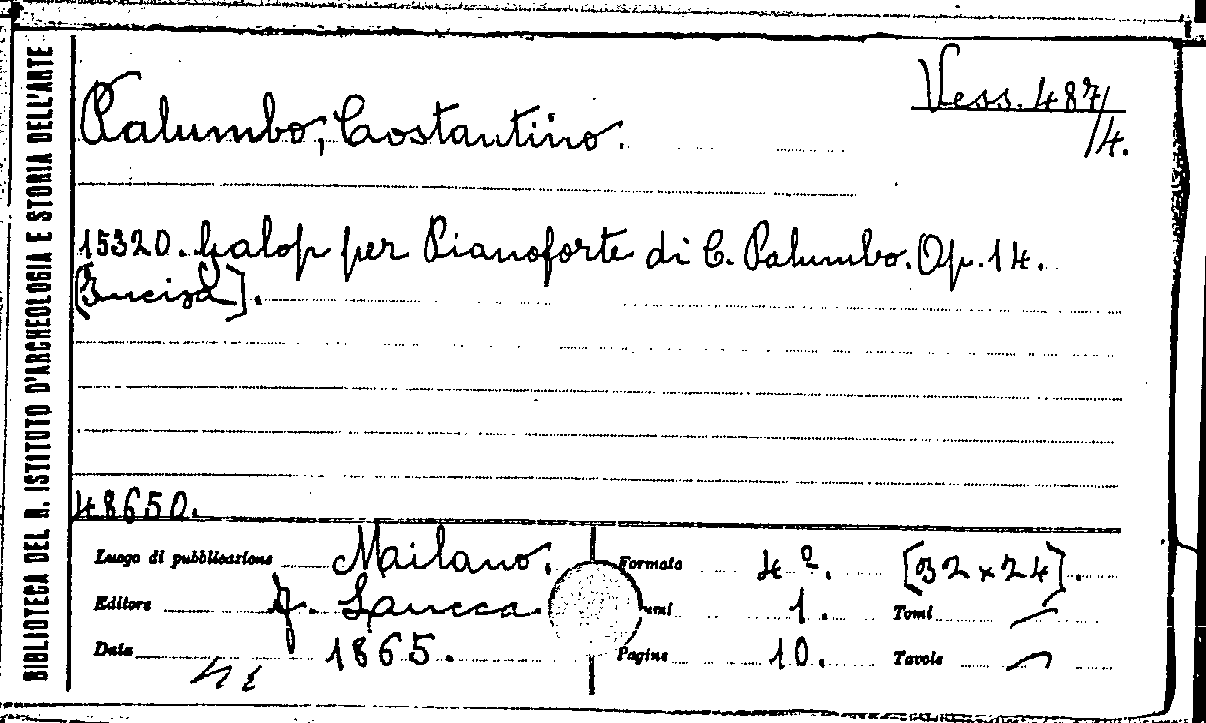 BIBLIOTECA DEL R. ISTITUTO D'ARCHEOLOGIA E STORIA DELL'ARTE
Palumbo, Costantino.
Vess. 487/
/4.
15320. Galop per Pianoforte di C. Palumbo. Op. 14.
[Incisa].
48650.
Luogo di pubblicazione Mailano. Formato 4º. [32 x 24].
Editore F. Lucca. umi 1. Tomi —
Data 1865. Pagine 10. Tavole —